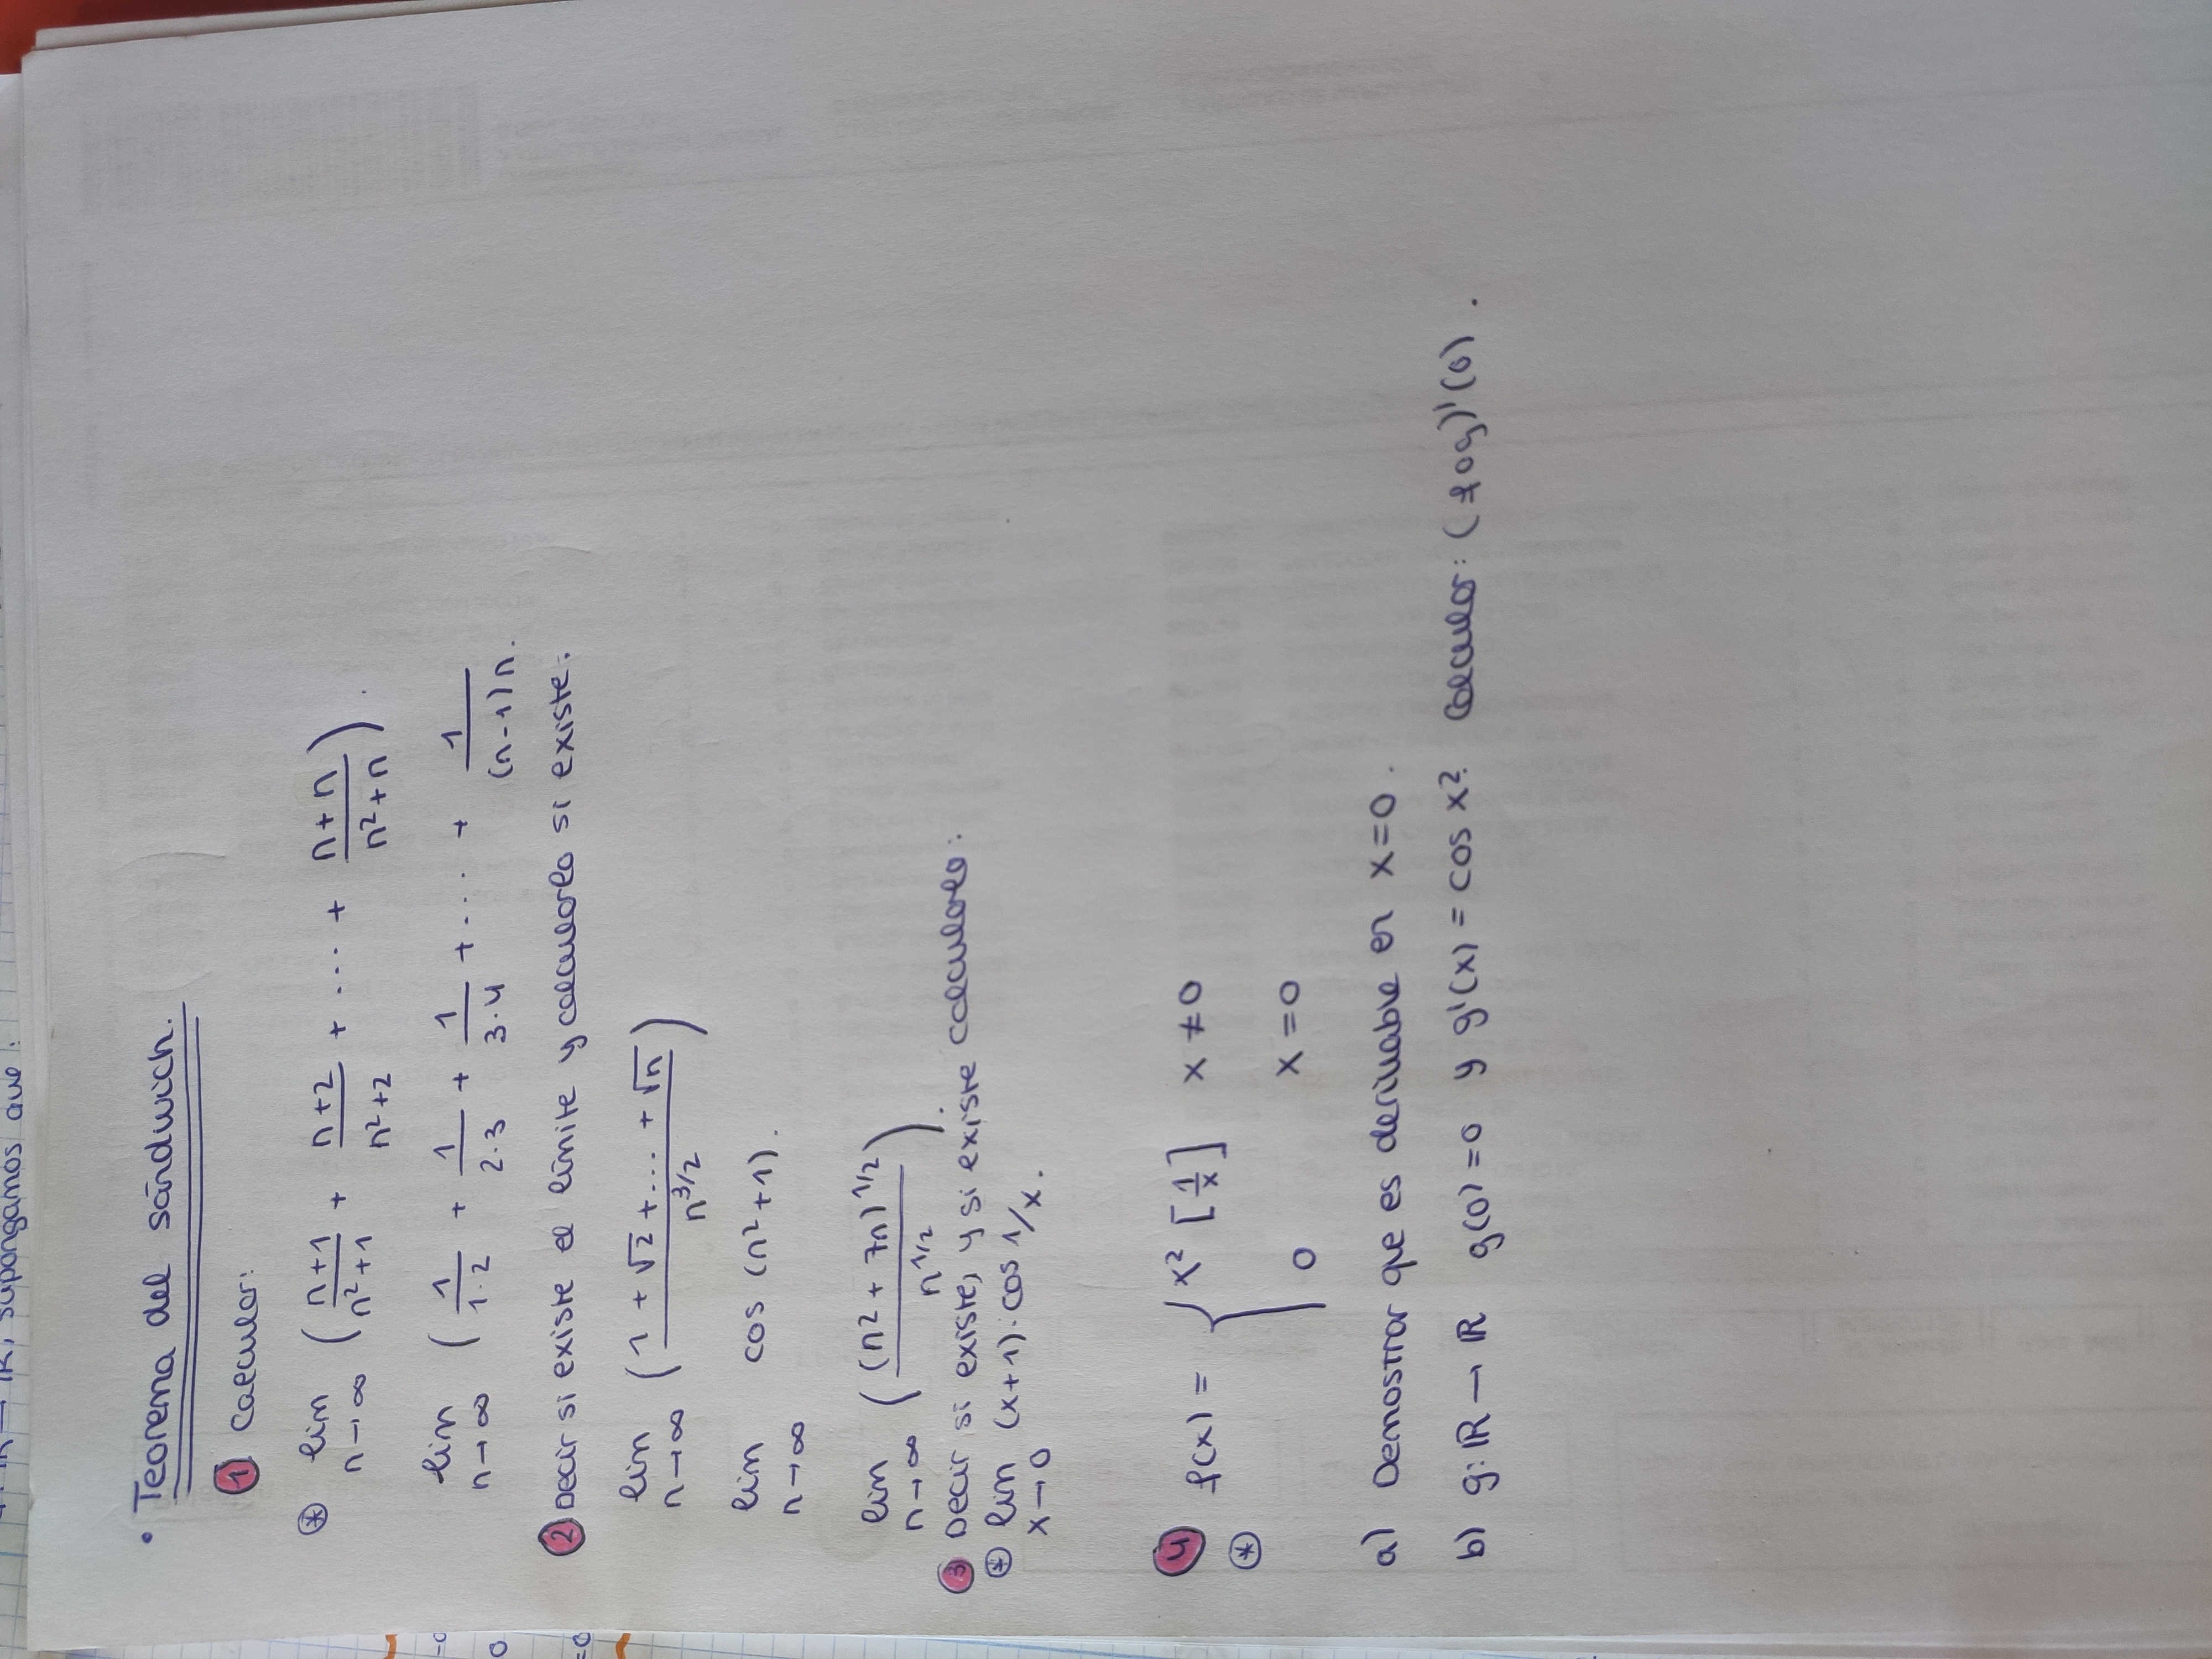 • Teorema del sándwich.
1 Calcular:
* lim n→∞ ( (n+1)/(n²+1) + (n+2)/(n²+2) + ... + (n+n)/(n²+n) ).
lim n→∞ ( 1/(1·2) + 1/(2·3) + 1/(3·4) + ... + 1/((n-1)n.
2 Decir si existe el límite y calcularlo si existe:
lim n→∞ ( (1 + √2 + ... + √n)/n^(3/2) )
lim n→∞ cos (n²+1).
lim n→∞ ( (n² + 7n)^(1/2)/n^(1/2) ).
3 Decir si existe, y si existe calcularlo:
* lim x→0 (x+1)·cos 1/x.
4 f(x) = { x² [1/x] x ≠ 0
* 0 x = 0
a) Demostrar que es derivable en x=0.
b) g: ℝ → ℝ g(0)=0 y g'(x) = cos x². Calcular: (fog)'(0).